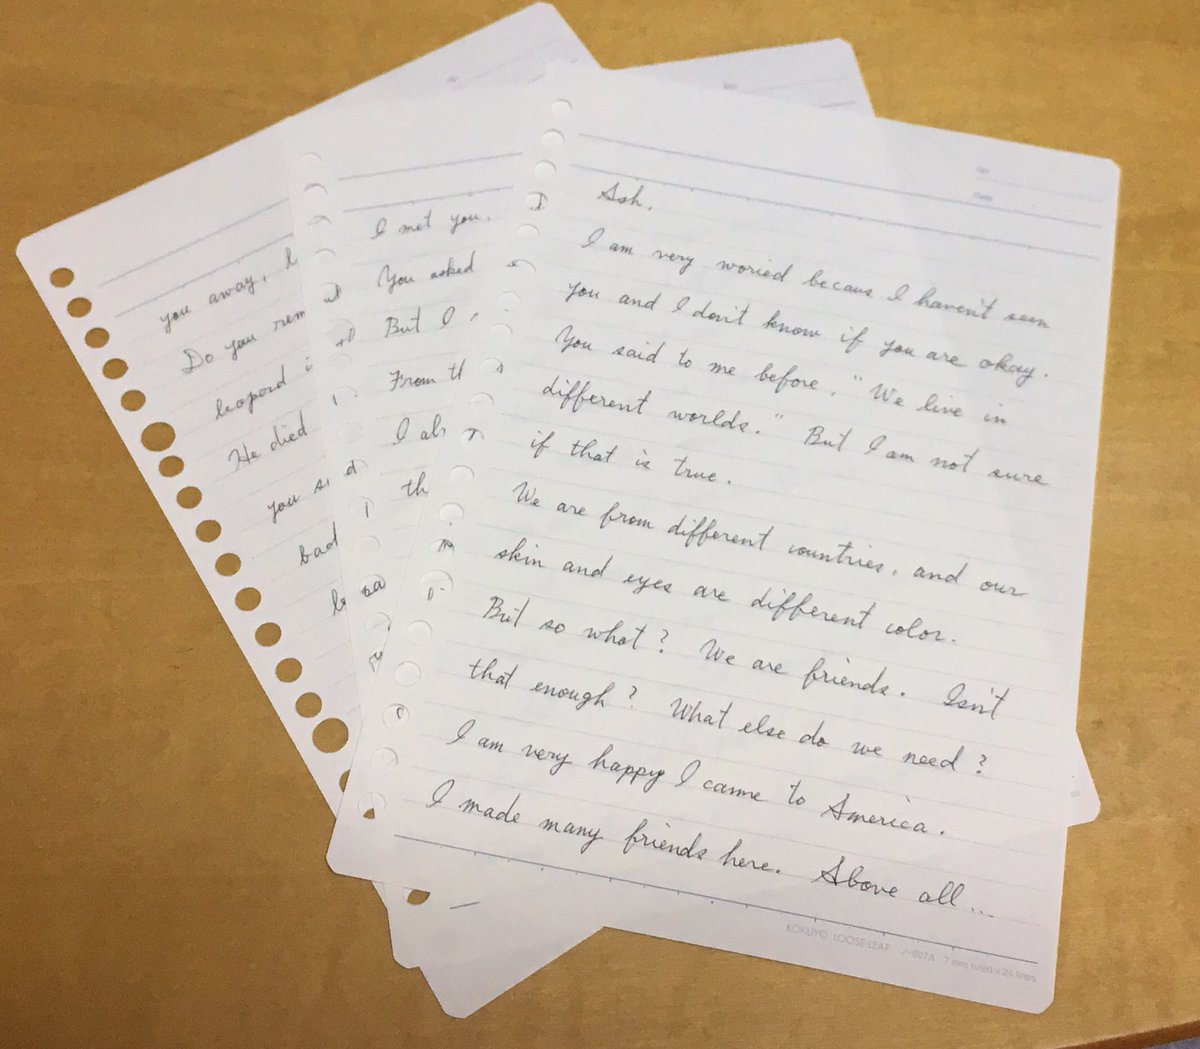 Ash.
I am very woried becaus I haven't seen
you and I don't know if you are okay.
You said to me before, "We live in
different worlds." But I am not sure
if that is true.
We are from different countries, and our
skin and eyes are different color.
But so what? We are friends. Isn't
that enough? What else do we need?
I am very happy I came to America.
I made many friends here. Above all...
KOKUYO LOOSE-LEAF 7 mm ruled x 24 lines
I met you.
You asked
But I
From th
I al
th
you away,
Do you rem
leopard i
He died
you s
bad